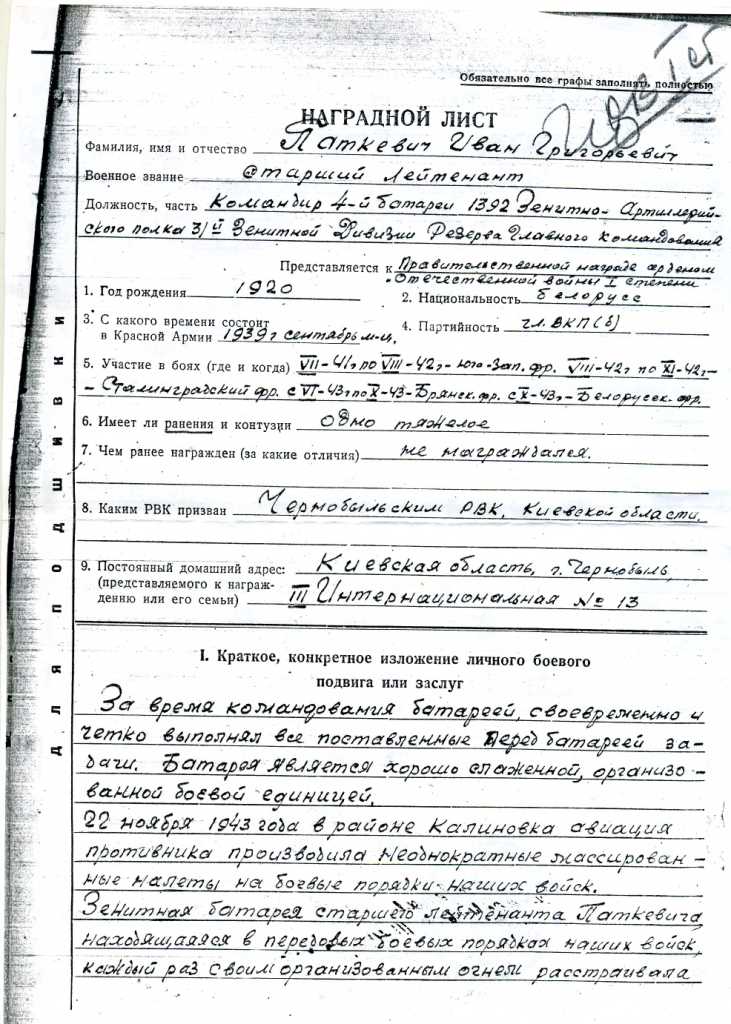 Обязательно все графы заполнять полностью
НАГРАДНОЙ ЛИСТ
Фамилия, имя и отчество Паткевич Иван Григорьевич
Военное звание Старший Лейтенант
Должность, часть Командир 4-й батареи 1392 Зенитно-Артиллерий-
ского полка 31 й Зенитной Дивизии Резерва Главного Командования
Представляется к Правительственной награде орденом
"Отечественной войны I степени
1. Год рождения 1920
2. Национальность белорусс
3. С какого времени состоит
в Красной Армии 1939г сентябрь м-ц.
4. Партийность чл. ВКП(б)
5. Участие в боях (где и когда) VII-41г по VIII-42г- юго-Зап. фр. VIII-42г по XI-42г-
- Сталинградский фр. с VI-43г по X-43-Брянск. фр. с X-43г-Белорусск. фр.
6. Имеет ли ранения и контузии одно тяжелое
7. Чем ранее награжден (за какие отличия) не награждался.
8. Каким РВК призван Чернобыльским РВК, Киевской области.
9. Постоянный домашний адрес: Киевская область, г. Чернобыль,
(представляемого к награж-
дению или его семьи) III Интернациональная № 13
I. Краткое, конкретное изложение личного боевого
подвига или заслуг
За время командования батареей, своевременно и
четко выполнял все поставленные перед батареей за-
дачи. Батарея является хорошо слаженной, организо-
ванной боевой единицей.
22 ноября 1943 года в районе Калиновка авиация
противника производила неоднократные массирован-
ные налеты на боевые порядки наших войск.
Зенитная батарея старшего лейтенанта Паткевича,
находящаяся в передовых боевых порядках наших войск,
каждый раз своим организованным огнем расстраивала
ДЛЯ ПОДШИВКИ